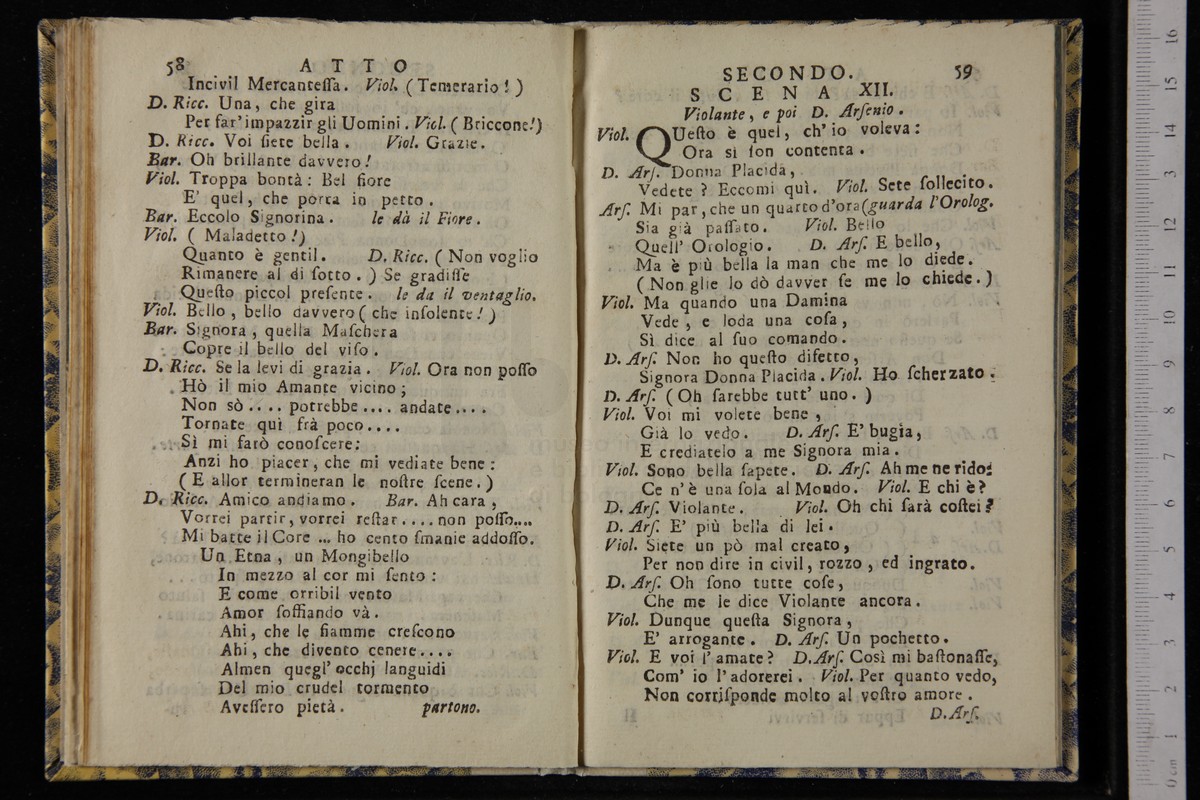 58 ATTO
Incivil Mercanteſſa. Viol. (Temerario!)
D. Ricc. Una, che gira
Per far' impazzir gli Uomini. Viol. (Briccone!)
D. Ricc. Voi ſiete bella. Viol. Grazie.
Bar. Oh brillante davvero!
Viol. Troppa bontà: Bel fiore
E' quel, che porta in petto.
Bar. Eccolo Signorina. le dà il Fiore.
Viol. (Maladetto!)
Quanto è gentil. D. Ricc. (Non voglio
Rimanere al di ſotto.) Se gradiſſe
Queſto piccol preſente. le da il ventaglio.
Viol. Bello, bello davvero (che inſolente!)
Bar. Signora, quella Maſchera
Copre il bello del viſo.
D. Ricc. Se la levi di grazia. Viol. Ora non poſſo
Hò il mio Amante vicino;
Non sò .... potrebbe .... andate ....
Tornate qui frà poco ....
Sì mi farò conoſcere:
Anzi ho piacer, che mi vediate bene:
(E allor termineran le noſtre ſcene.)
D. Ricc. Amico andiamo. Bar. Ah cara,
Vorrei partir, vorrei reſtar .... non poſſo....
Mi batte il Core ... ho cento ſmanie addoſſo.
Un Etna, un Mongibello
In mezzo al cor mi ſento:
E come orribil vento
Amor ſoffiando và.
Ahi, che le fiamme creſcono
Ahi, che divento cenere....
Almen quegl' occhj languidi
Del mio crudel tormento
Aveſſero pietà. partono.
SECONDO. 59
SCENA XII.
Violante, e poi D. Arſenio.
Viol. QUeſto è quel, ch' io voleva:
Ora sì ſon contenta.
D. Arſ. Donna Placida,
Vedete? Eccomi quì. Viol. Sete ſollecito.
Arſ. Mi par, che un quarto d'ora (guarda l'Orolog.
Sia già paſſato. Viol. Bello
Quell' Orologio. D. Arſ. E bello,
Ma è più bella la man che me lo diede.
(Non glie lo dò davver ſe me lo chiede.)
Viol. Ma quando una Damina
Vede, e loda una coſa,
Sì dice al ſuo comando.
D. Arſ. Non ho queſto difetto,
Signora Donna Placida. Viol. Ho ſcherzato.
D. Arſ. (Oh ſarebbe tutt' uno.)
Viol. Voi mi volete bene,
Già lo vedo. D. Arſ. E' bugia,
E crediatelo a me Signora mia.
Viol. Sono bella ſapete. D. Arſ. Ah me ne rido:
Ce n' è una ſola al Mondo. Viol. E chi è?
D. Arſ. Violante. Viol. Oh chi ſarà coſtei?
D. Arſ. E' più bella di lei.
Viol. Siete un pò mal creato,
Per non dire in civil, rozzo, ed ingrato.
D. Arſ. Oh ſono tutte coſe,
Che me le dice Violante ancora.
Viol. Dunque queſta Signora,
E' arrogante. D. Arſ. Un pochetto.
Viol. E voi l' amate? D. Arſ. Così mi baſtonaſſe,
Com' io l' adorerei. Viol. Per quanto vedo,
Non corriſponde molto al voſtro amore.
D. Arſ.